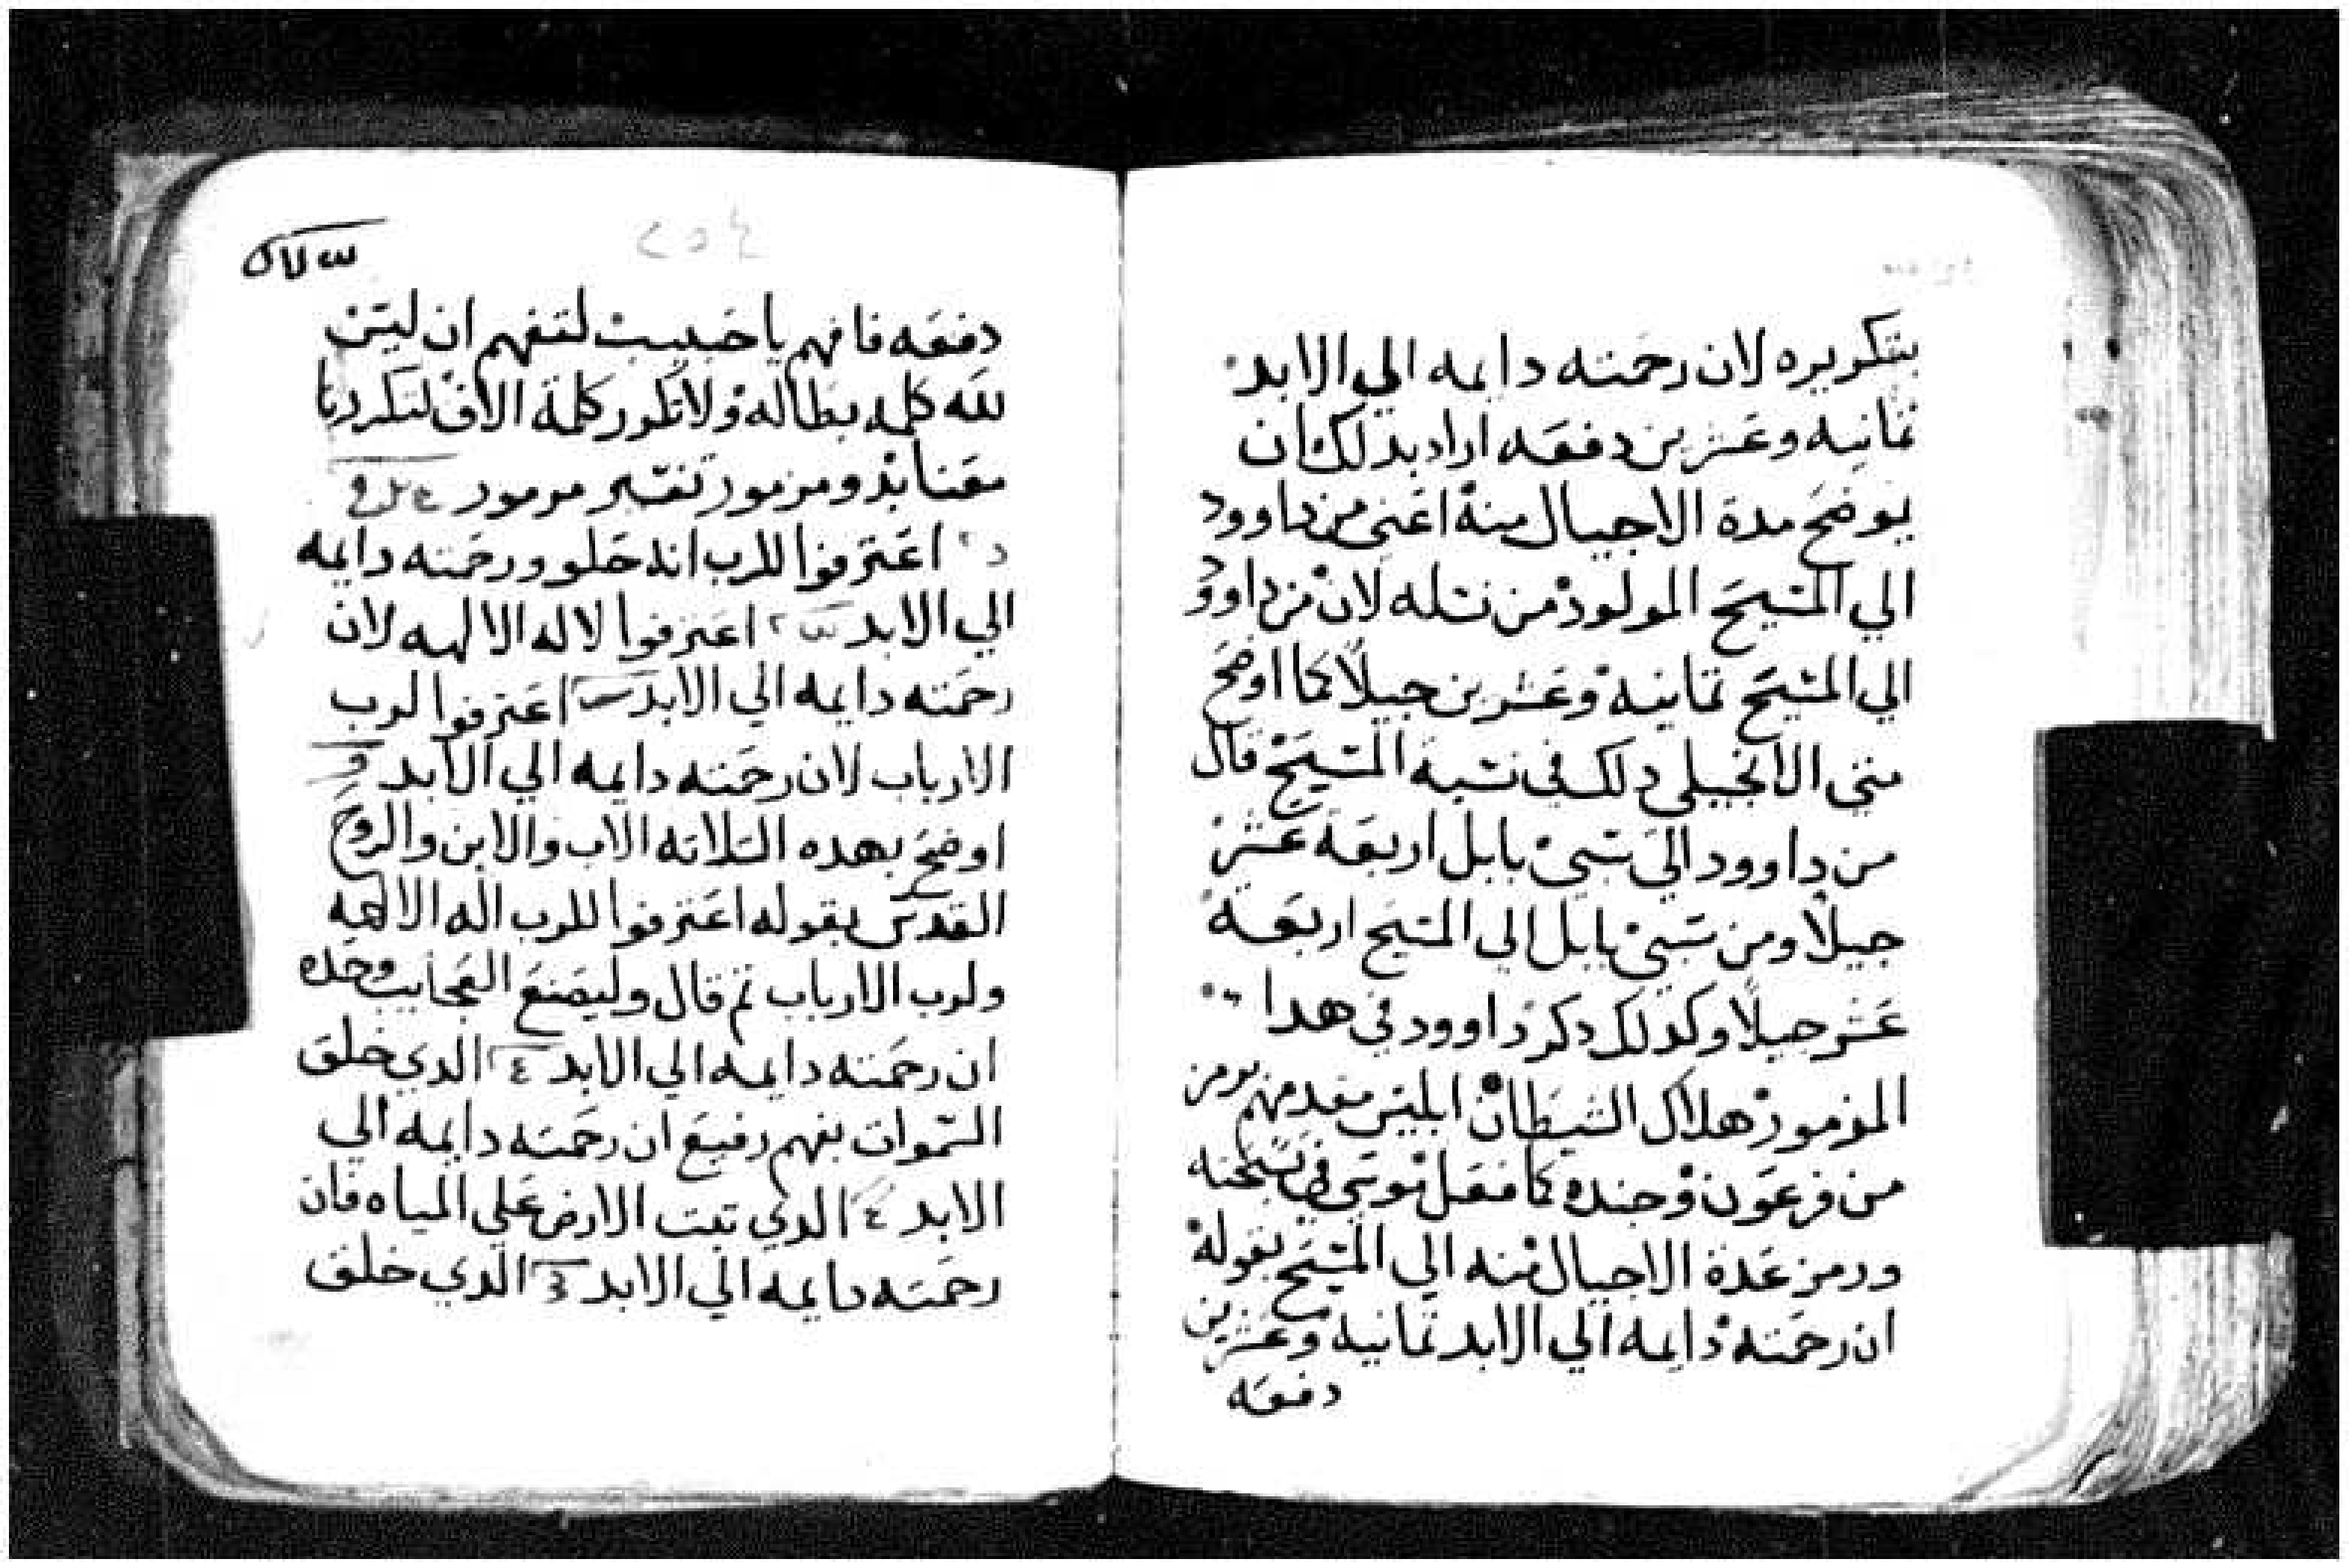 بتكريره لان رحمته دايمه الي الابد
تمانيه وعشرين دفعه اراد بدلك ان
يوضح مدة الاجيال منه اعني من داوود
الي المسيح المولود من نسله لان من داوود
الي المسيح تمانيه وعشرين جيلًا كما اوضح
متي الانجيلي دلك في نسبة المسيح قال
من داوود الي سبي بابل اربعة عشر
جيلًا ومن سبي بابل الي المسيح اربعة
عشر جيلًا وكدلك دكر داوود في هدا
المزمور هلاك الشيطان ابليس
من فرعون وجنده كما فعل موسي في تسبحته
ورمز عدة الاجيال منه الي المسيح بقوله
ان رحمته دايمه الي الابد تمانيه وعشرين
دفعه
٢٥٤
دفعه فافهم يا حبيب لتفهم ان ليس
لله كلمه بطاله ولا تكرر كلمة
معنا تفسير مزمور
اعترفوا للرب انه حلو ورحمته دايمه
الي الابد اعترفوا لاله الالهه لان
رحمته دايمه الي الابد اعترفوا لرب
الارباب لان رحمته دايمه الي الابد
اوضح بهده التلاته الاب والابن والروح
القدس بقوله اعترفوا للرب اله الالهه
ولرب الارباب تم قال وليصنع العجايب وحده
ان رحمته دايمه الي الابد ٤ الدي خلق
السموات بفهم رفيع ان رحمته دايمه الي
الابد الدي تبت الارض علي المياه فان
رحمته دايمه الي الابد الدي خلق